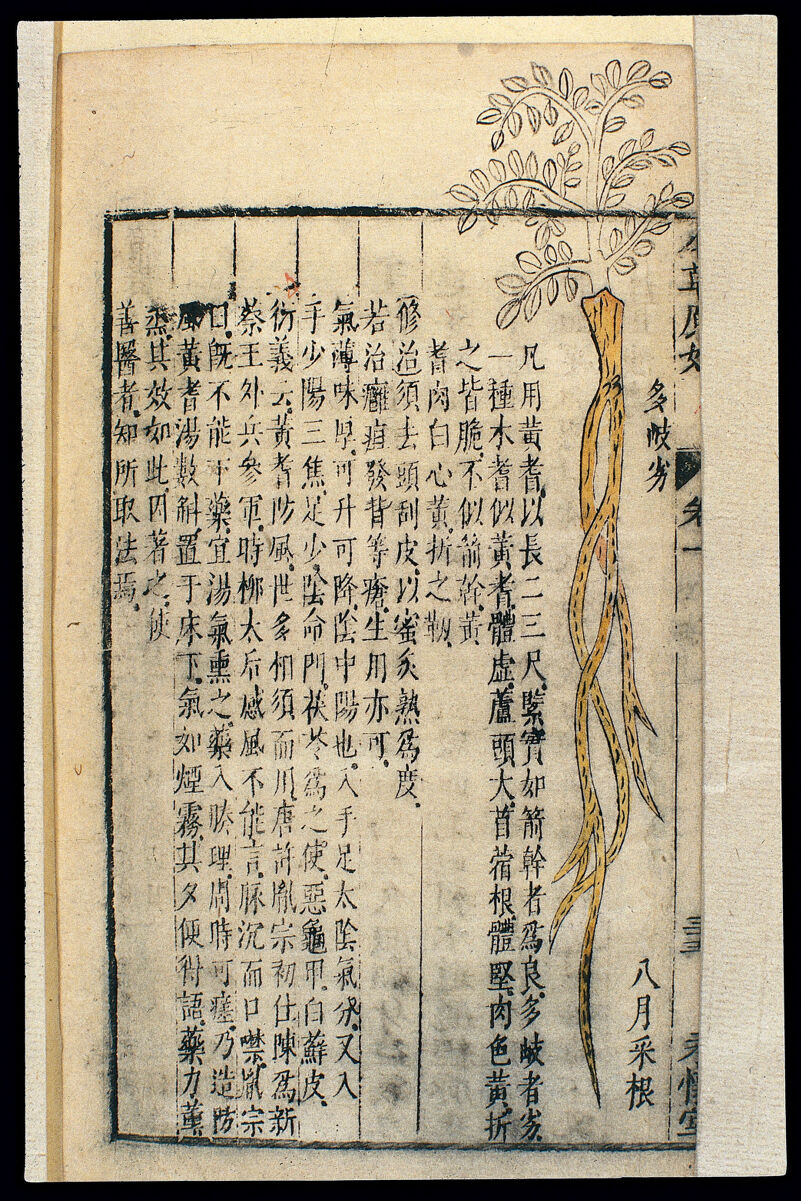 卷一
多岐劣
八月采根
凡用黃耆、以長二三尺、緊實如箭幹者爲良、多岐者劣、
一種木耆似黃耆、體虛、蘆頭大、苜蓿根、體堅、肉色黃、折
之皆脆、不似箭幹黃
耆肉白心黃、折之靱、
修治須去頭刮皮、以蜜炙熟爲度、
若治癰疽發背等瘡、生用亦可、
氣薄味厚、可升可降、陰中陽也、入手足太陰氣分、又入
手少陽三焦、足少陰命門、茯苓爲之使、惡龜甲、白蘚皮、
衍義云、黃耆防風、世多相須而用、唐許胤宗初仕陳爲新
蔡王外兵參軍、時柳太后感風不能言、脉沉而口噤、胤宗
曰、既不能下藥、宜湯氣熏之、藥入腠理、周時可瘥、乃造防
風黃耆湯數斛、置于床下、氣如煙霧、其夕便得語、藥力薰
烝、其效如此、因著之、使
善醫者、知所取法焉、